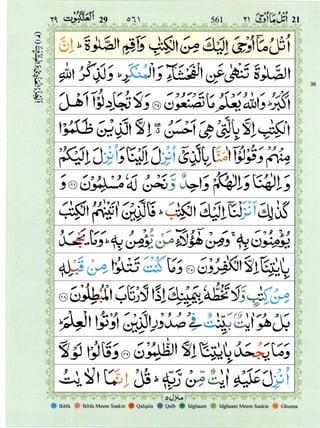 ٢٩ اَلْعَنْكَبُوْت 29 ٥٦١ 561 اُتْلُ مَاۤ اُوْحِىَ ٢١ 21
اُتْلُ مَاۤ اُوْحِىَ اِلَيْكَ مِنَ الْكِتٰبِ وَاَقِمِ الصَّلٰوةَ ؕ اِنَّ
الصَّلٰوةَ تَنْهٰى عَنِ الْفَحْشَآءِ وَالْمُنْكَرِ ؕ وَلَذِكْرُ اللّٰهِ
اَكْبَرُ ؕ وَاللّٰهُ يَعْلَمُ مَا تَصْنَعُوْنَ ﴿٤٥﴾ وَلَا تُجَادِلُوْۤا اَهْلَ
الْكِتٰبِ اِلَّا بِالَّتِىْ هِىَ اَحْسَنُ ۖ اِلَّا الَّذِيْنَ ظَلَمُوْا
مِنْهُمْ وَقُوْلُوْۤا اٰمَنَّا بِالَّذِىْۤ اُنْزِلَ اِلَيْنَا وَاُنْزِلَ اِلَيْكُمْ
وَاِلٰهُنَا وَاِلٰهُكُمْ وَاحِدٌ وَّنَحْنُ لَهٗ مُسْلِمُوْنَ ﴿٤٦﴾ وَ
كَذٰلِكَ اَنْزَلْنَاۤ اِلَيْكَ الْكِتٰبَ ؕ فَالَّذِيْنَ اٰتَيْنٰهُمُ الْكِتٰبَ
يُؤْمِنُوْنَ بِهٖ ۚ وَمِنْ هٰۤؤُلَآءِ مَنْ يُّؤْمِنُ بِهٖ ؕ وَمَا يَجْحَدُ
بِاٰيٰتِنَاۤ اِلَّا الْكٰفِرُوْنَ ﴿٤٧﴾ وَمَا كُنْتَ تَتْلُوْا مِنْ قَبْلِهٖ
مِنْ كِتٰبٍ وَّلَا تَخُطُّهٗ بِيَمِيْنِكَ اِذًا لَّارْتَابَ الْمُبْطِلُوْنَ ﴿٤٨﴾
بَلْ هُوَ اٰيٰتٌۢ بَيِّنٰتٌ فِىْ صُدُوْرِ الَّذِيْنَ اُوْتُوا الْعِلْمَ ؕ
وَمَا يَجْحَدُ بِاٰيٰتِنَاۤ اِلَّا الظّٰلِمُوْنَ ﴿٤٩﴾ وَقَالُوْا لَوْلَاۤ
اُنْزِلَ عَلَيْهِ اٰيٰتٌ مِّنْ رَّبِّهٖ ؕ قُلْ اِنَّمَا الْاٰيٰتُ
منزل ٥
Ikhfa Ikhfa Meem Saakin Qalqala Qalb Idghaam Idghaam Meem Saakin Ghunna